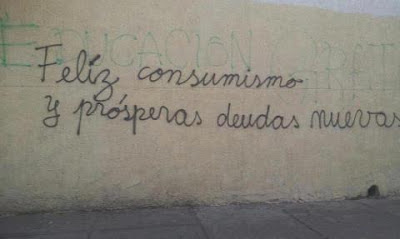 EDUCACIÓN GRATIS
Felíz consumismo
y prósperas deudas nuevas